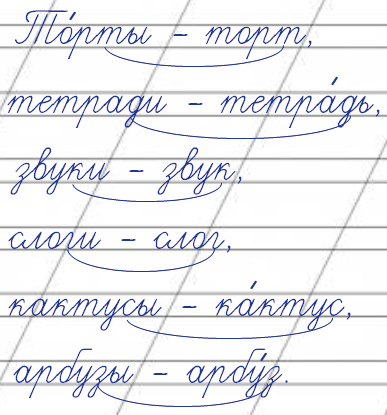 То́рты – торт,
тетради – тетра́дь,
звуки – звук,
слоги – слог,
кактусы – ка́ктус,
арбузы – арбу́з.